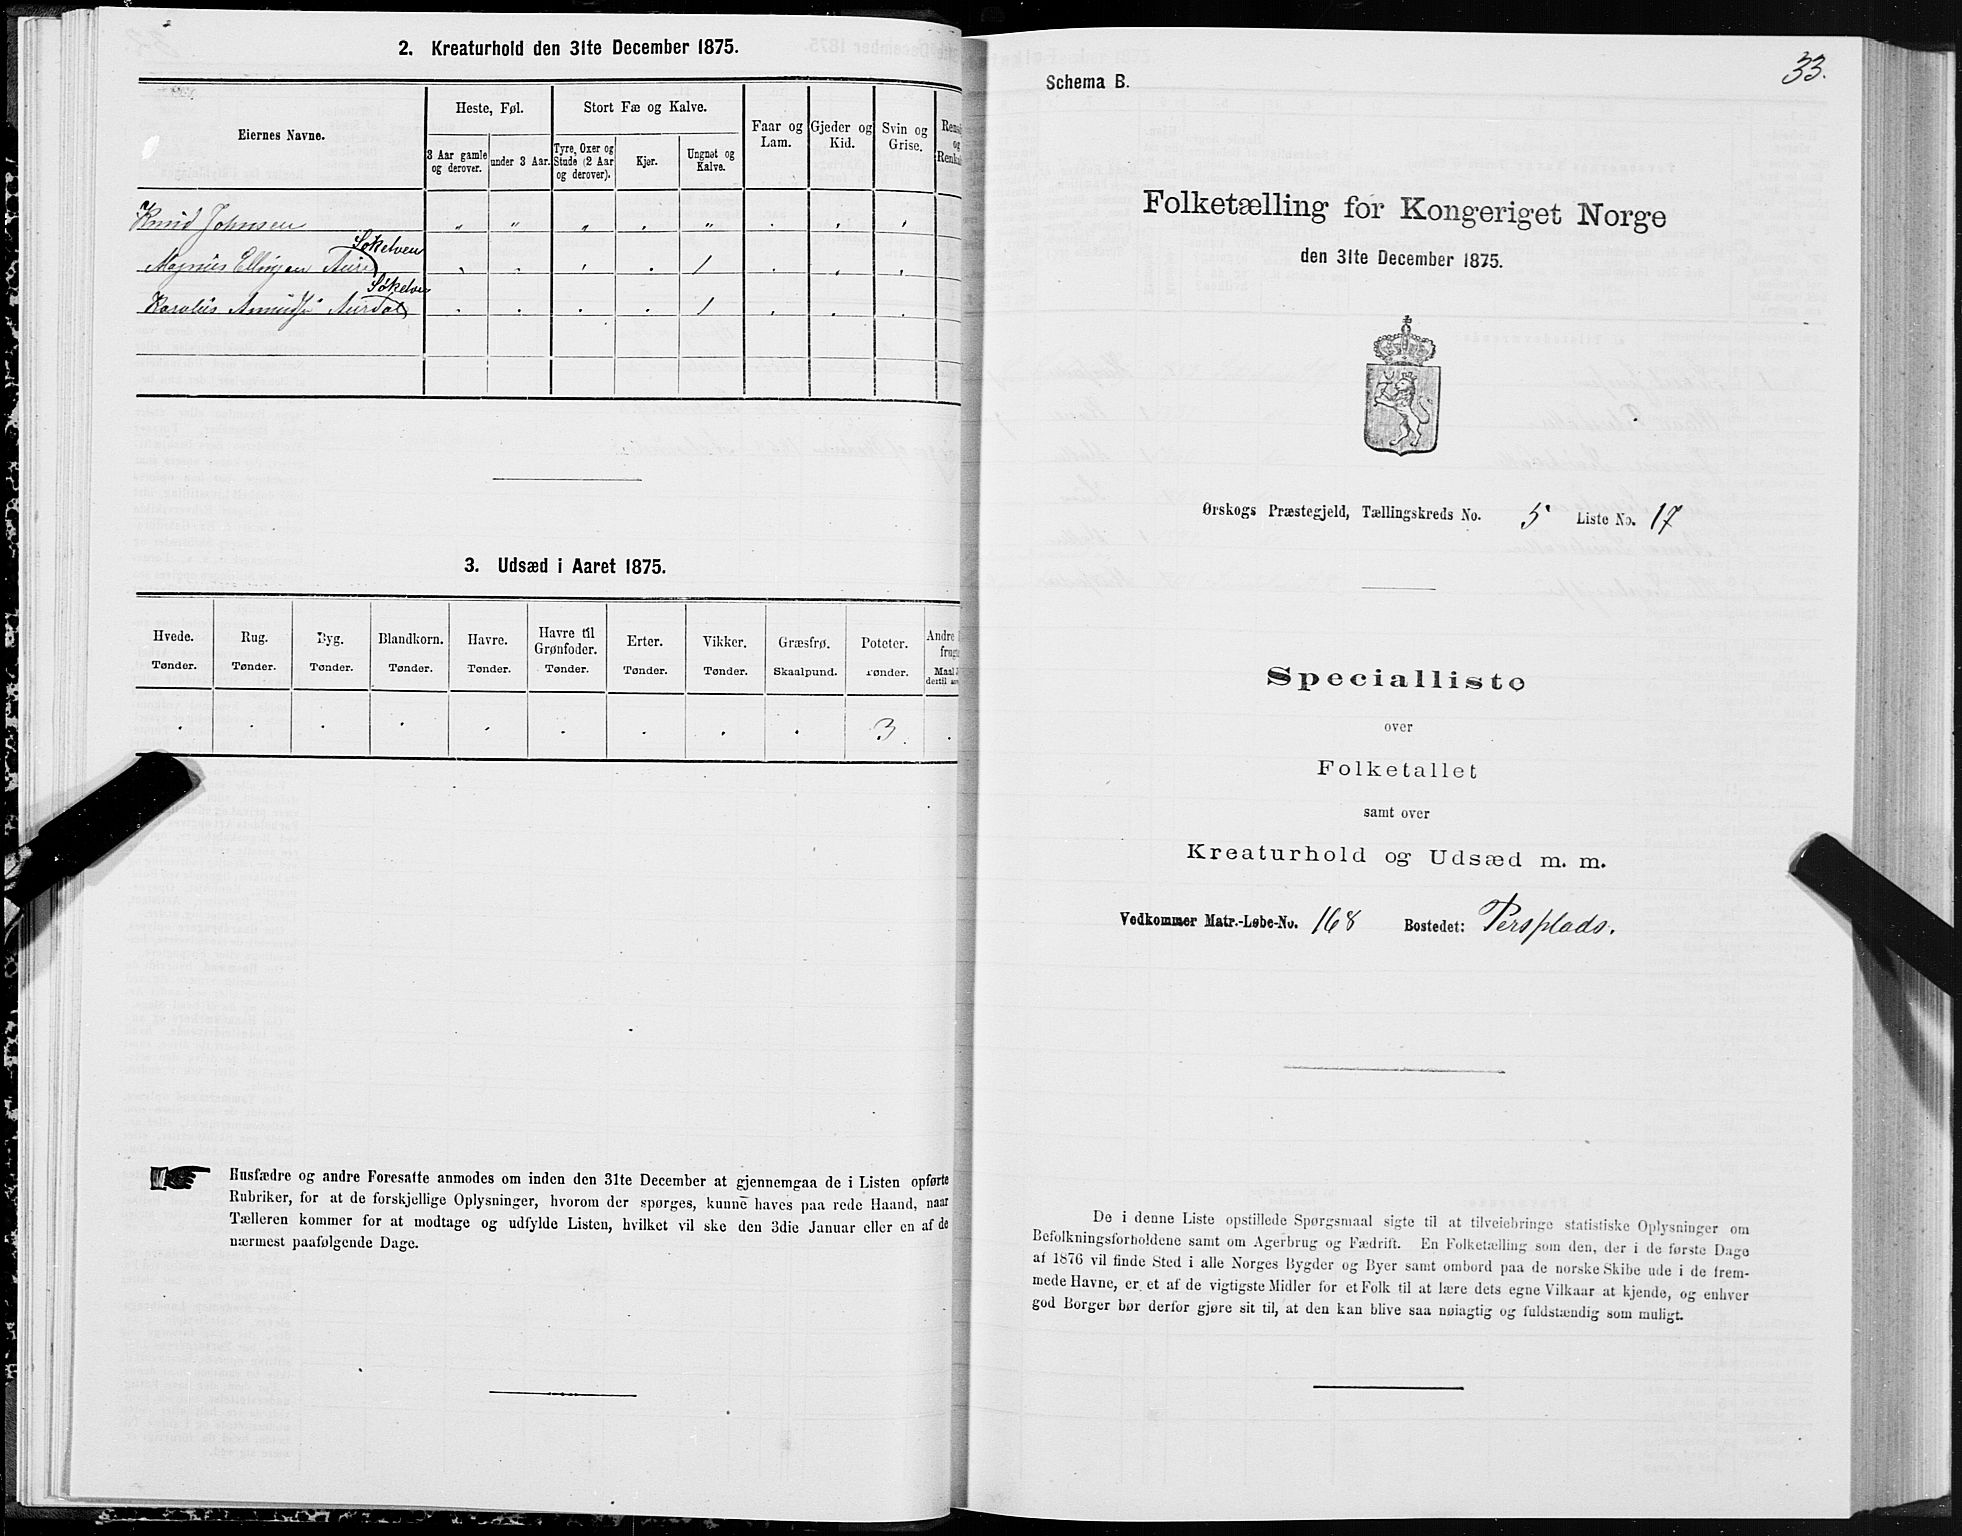 2. Kreaturhold den 31te December 1875.
Eiernes Navne.
Heste, Føl.
Stort Fæ og Kalve.
Faar og Lam.
Gjeder og Kid.
Svin og Grise.
og
3 Aar gamle og derover.
under 3 Aar.
Tyre, Oxer og Stude (2 Aar og derover).
Kjør.
Ungnøt og Kalve.
Knud Johnsen
Søkelven
Magnus Ellingsen Aure 1
Søkelven
Karolus Amundsn Aurdal 1
3. Udsæd i Aaret 1875.
Hvede. Rug. Byg. Blandkorn. Havre. Havre til Grønfoder. Erter. Vikker. Græsfrø. Poteter. Andre
Tønder. Tønder. Tønder. Tønder. Tønder. Tønder. Tønder. Tønder. Skaalpund. Tønder. Maal
3
Husfædre og andre Foresatte anmodes om inden den 31te December at gjennemgaa de i Listen opførte
Rubriker, for at de forskjellige Oplysninger, hvorom der spørges, kunne haves paa rede Haand, naar
Tælleren kommer for at modtage og udfylde Listen, hvilket vil ske den 3die Januar eller en af de
nærmest paafølgende Dage.
33.
Schema B.
Folketælling for Kongeriget Norge
den 31te December 1875.
Ørskogs Præstegjeld, Tællingskreds No. 5 Liste No. 17
Specialliste
over
Folketallet
samt over
Kreaturhold og Udsæd m. m.
Vedkommer Matr.-Løbe-No. 168 Bostedet: Persplads.
De i denne Liste opstillede Spørgsmaal sigte til at tilveiebringe statistiske Oplysninger om
Befolkningsforholdene samt om Agerbrug og Fædrift. En Folketælling som den, der i de første Dage
af 1876 vil finde Sted i alle Norges Bygder og Byer samt ombord paa de norske Skibe ude i de frem-
mede Havne, er et af de vigtigste Midler for et Folk til at lære dets egne Vilkaar at kjende, og enhver
god Borger bør derfor gjøre sit til, at den kan blive saa nøiagtig og fuldstændig som muligt.